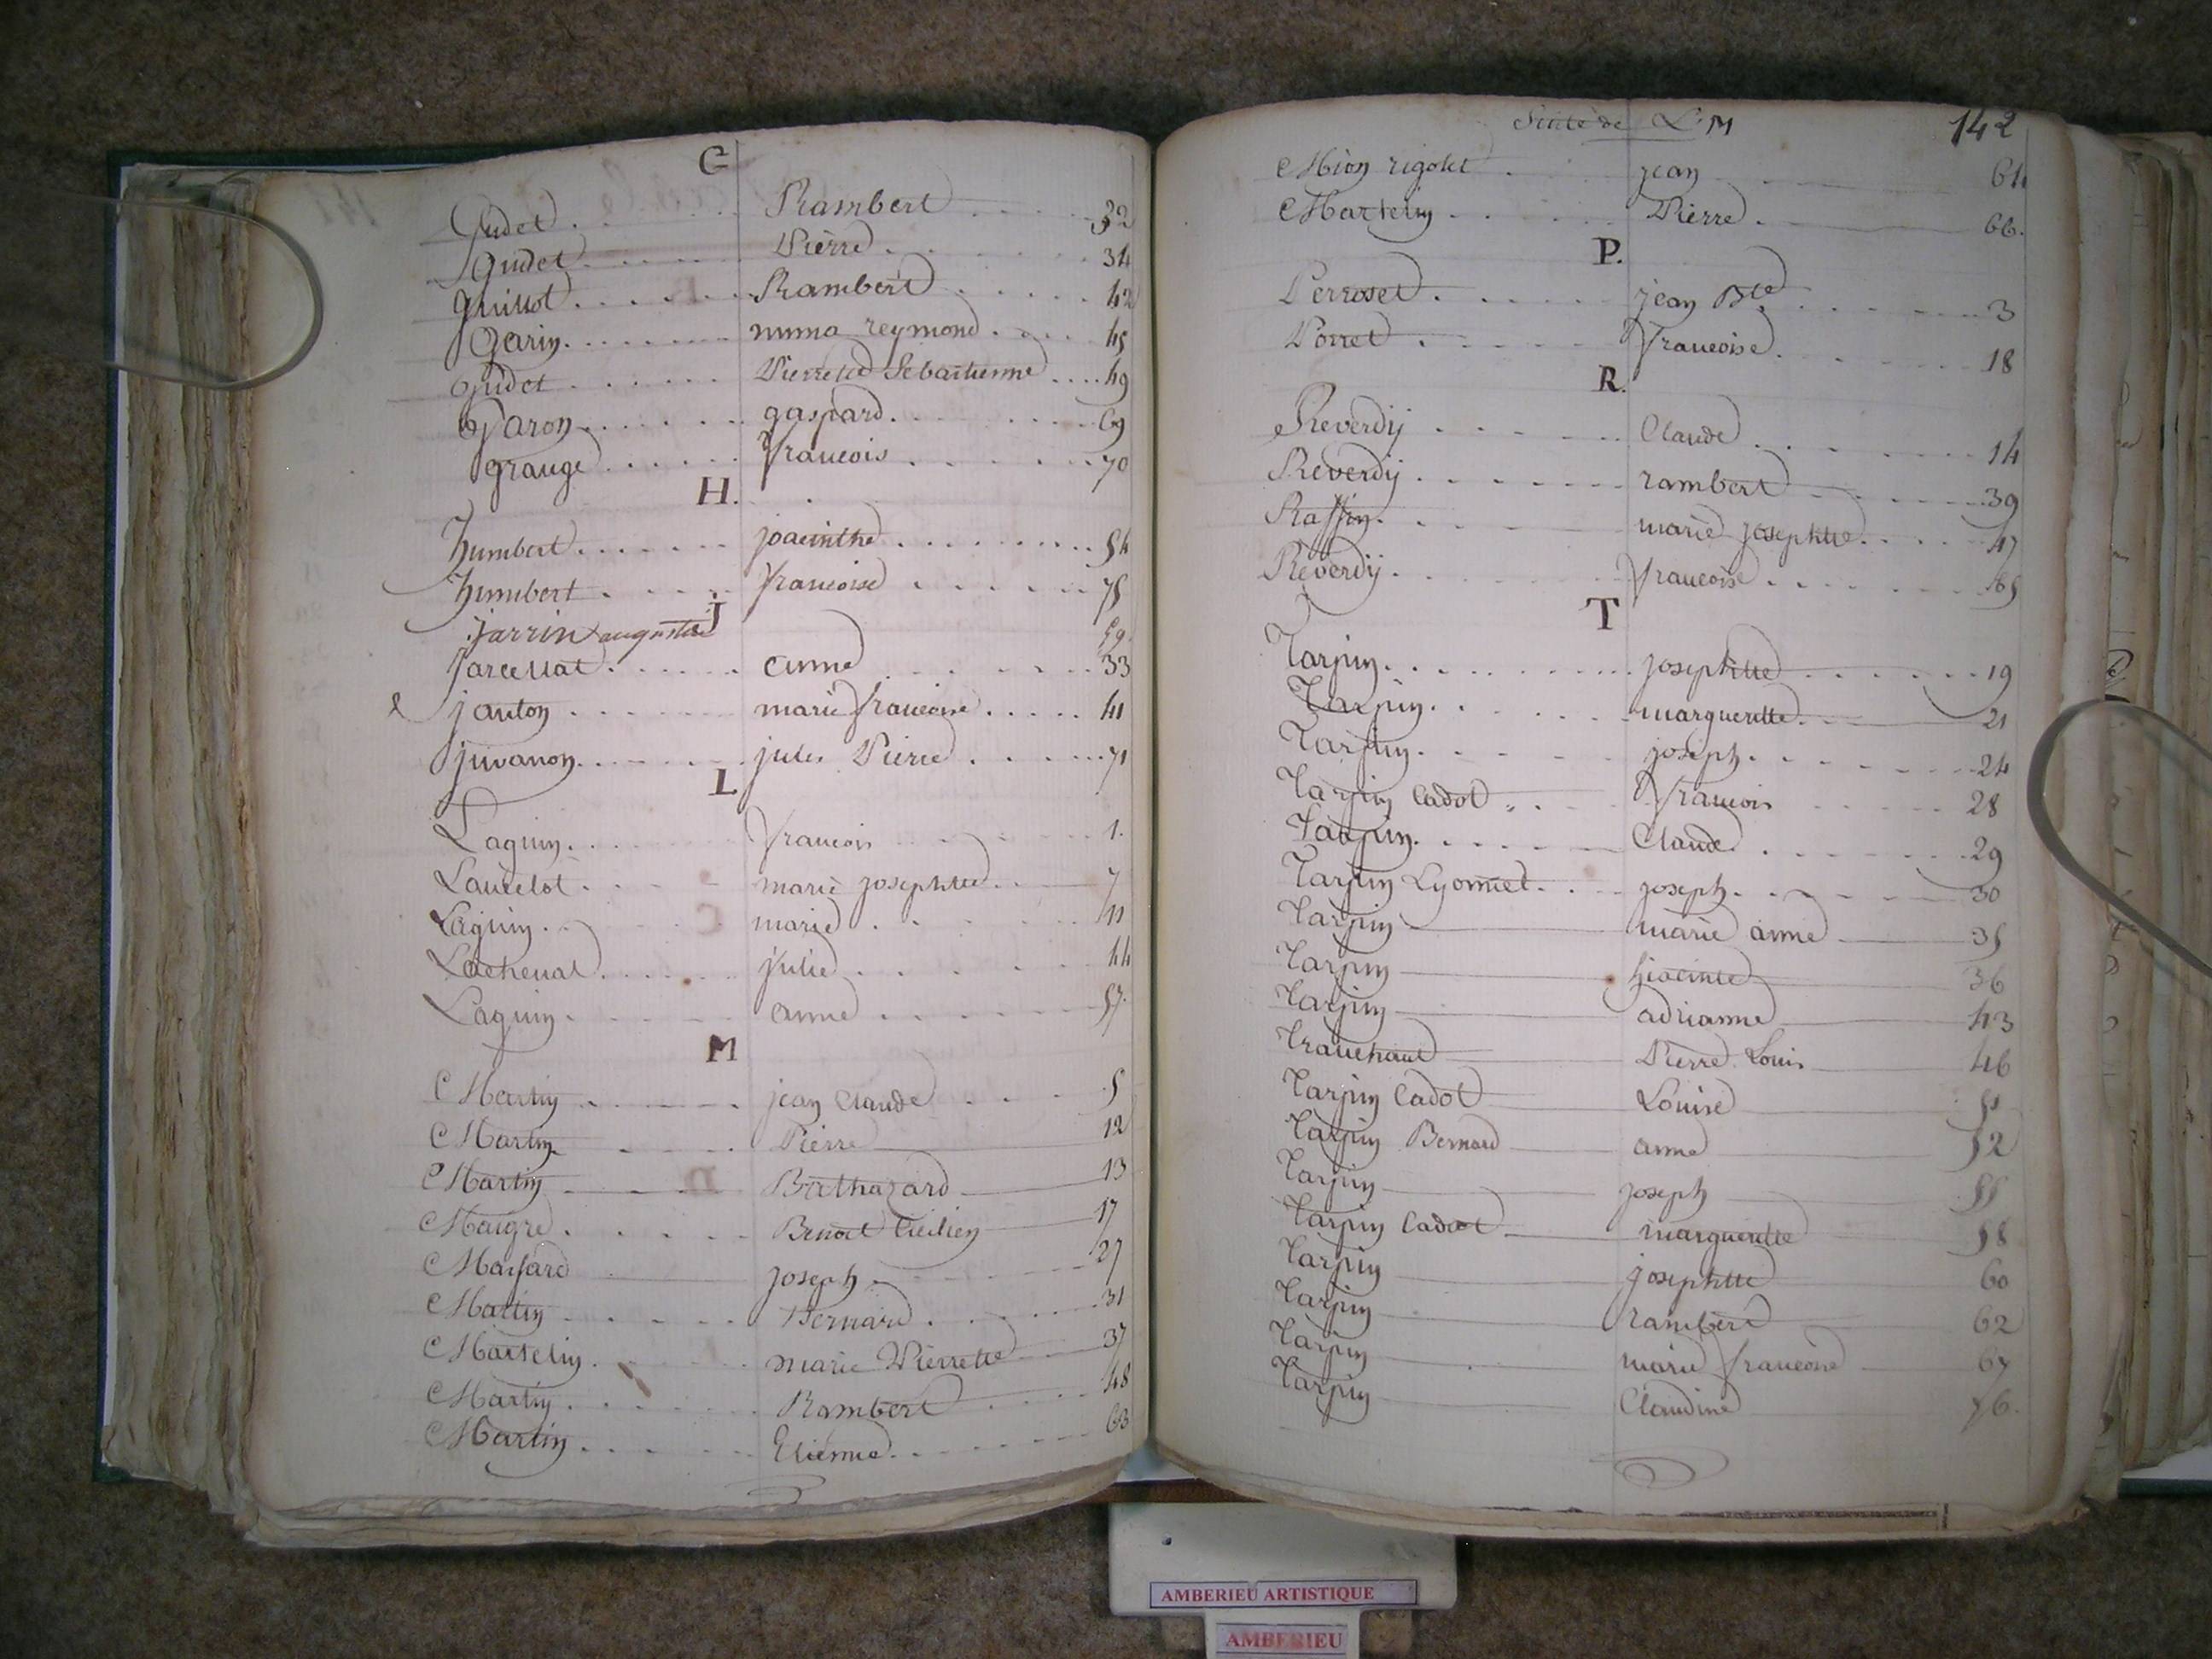 G
Gudet Rambert 32
Gudet Pierre 34
Guillot Rambert 42
Garin numa reymond 45
Gudet Pierrette Sebastienne 49
Garon gaspard 69
grange francois 70
H.
humbert joacinthe 54
humbert francoise 75
J
jarrin augustine 59
jarcellat anne 33
janton marie francoise 41
juvanon jules Pierre 71
L
Laguin francois 1
Lancelot marie josephtte 7
Laguin marie 11
Lacheval julie 44
Laguin anne 57
M
Martin jean Claude 5
Martin Pierre 12
Martin Balthazard 13
Maigre Benoit 17
joseph 27
Martin Bernard 31
Martelin marie Pierrette 37
Martin Rambert 48
Martin Etienne 63
Suite de L'M 142
Mion rigolet jean 64
Martelin Pierre 66.
P.
Perroset jean Bte 3
Porret francoise 18
R.
Reverdij Claude 14
Reverdij rambert 39
Raffin marie josephtte 47
Reverdij francoise 65
T
Tarpin josephtte 19
Tarpin margueritte 21
Tarpin joseph 24
Tarpin Cadot francois 28
Tarpin Claude 29
Tarpin Lyonnet joseph 30
Tarpin marie anne 35
Tarpin hiacinte 36
Tarpin adrianne 43
Tranchant Pierre Louis 46
Tarpin Cadot Louise 51
Tarpin Bernard anne 52
Tarpin joseph 55
Tarpin Cadot margueritte 58
Tarpin josephtte 60
Tarpin rambert 62
Tarpin marie francoise 67
Tarpin Claudine 76.
AMBERIEU ARTISTIQUE
AMBERIEU